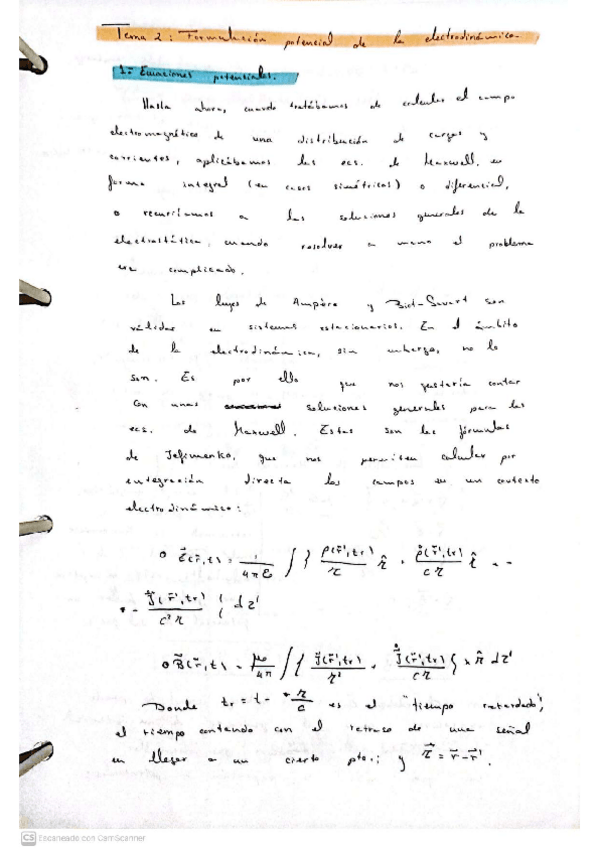 Tema 2: Formulación potencial de la electrodinámica.
1.- Ecuaciones potenciales.
Hasta ahora, cuando tratábamos de calcular el campo
electromagnético de una distribución de cargas y
corrientes, aplicábamos las ecs. de Maxwell, en
forma integral (en casos simétricos) o diferencial,
o recurríamos a las soluciones generales de la
electrostática, cuando resolver a mano el problema
era complicado.
Las leyes de Ampère y Biot-Savart son
válidas en sistemas estacionarios. En el ámbito
de la electrodinámica, sin embargo, no lo
son. Es por ello que nos gustaría contar
con unas soluciones generales para las
ecs. de Maxwell. Estas son las fórmulas
de Jefimenko, que nos permiten calcular por
integración directa los campos en un contexto
electrodinámico:
o E⃗(r⃗,t) = 1/4πε ∫ { ρ(r⃗',tr)/r² r̂ + ρ̇(r⃗',tr)/cr r̂ -
- J⃗̇(r⃗',tr)/c²r } dτ'
o B⃗(r⃗,t) = μ₀/4π ∫ { J⃗(r⃗',tr)/r² + J⃗̇(r⃗',tr)/cr } × r̂ dτ'
Donde tr = t - r/c es el "tiempo retardado",
el tiempo contando con el retraso de una señal
en llegar a un cierto pto.; y r⃗ = r⃗ - r⃗'.
CS Escaneado con CamScanner